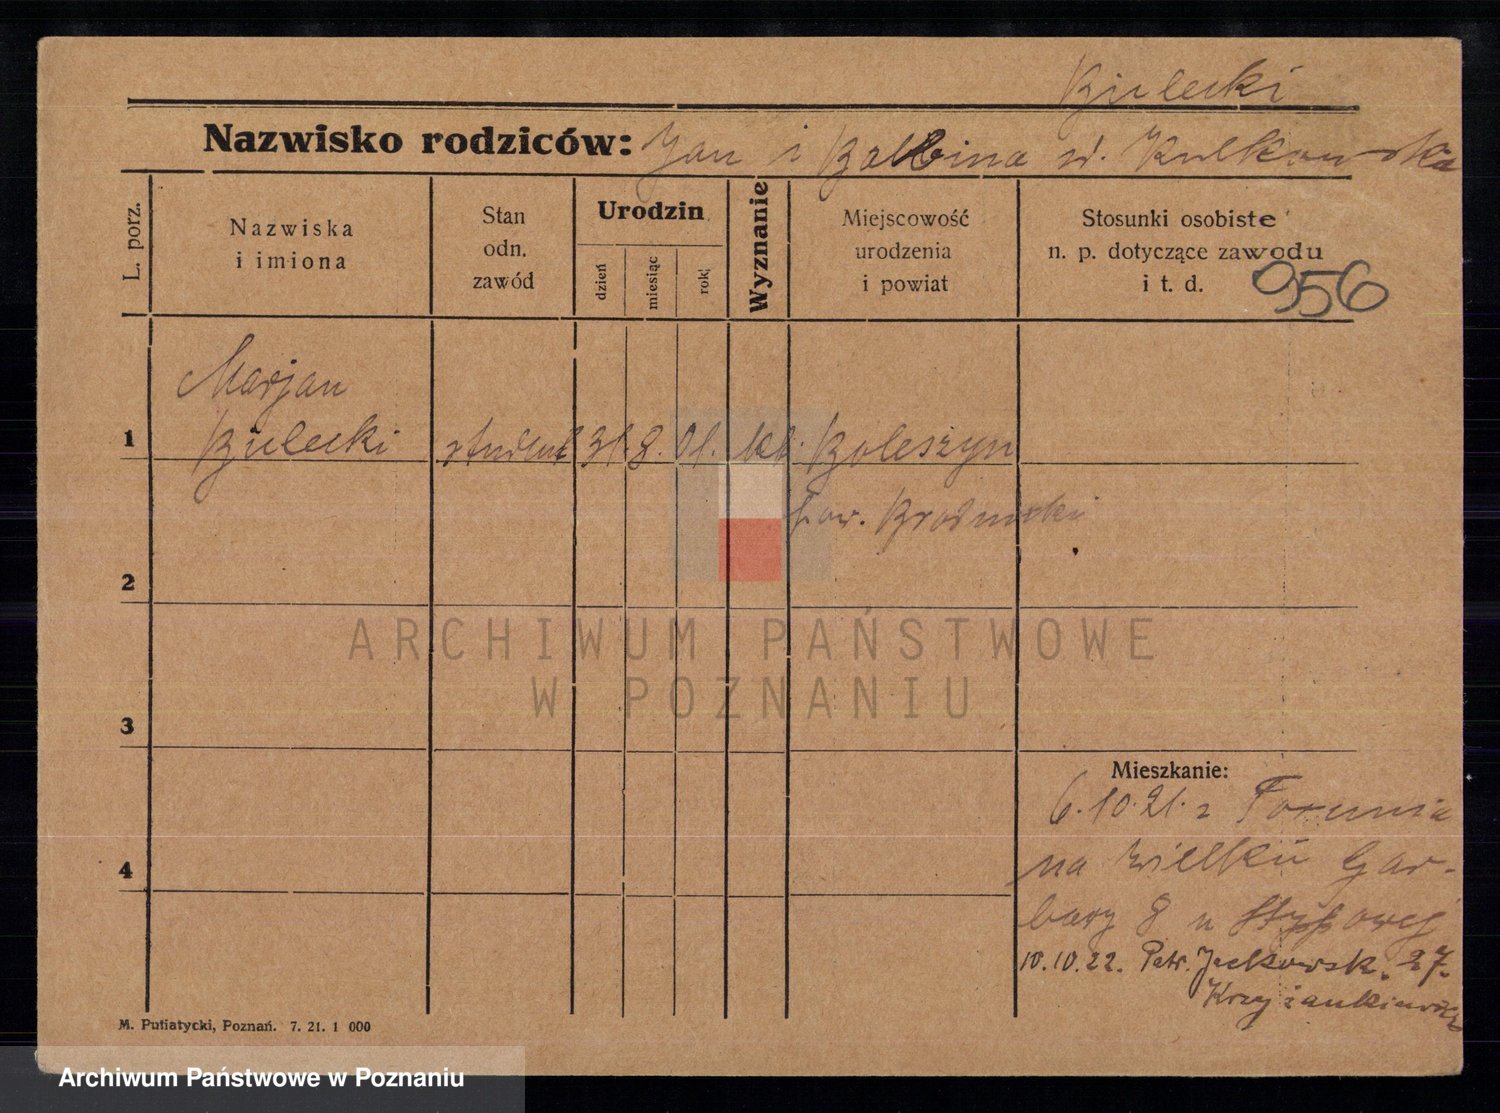 Bielecki
Nazwisko rodziców: Jan i Balbina z d. Kulkowska
L. porz.
Nazwiska
i imiona
Stan
odn.
zawód
Urodzin
dzień
miesiąc
rok
Wyznanie
Miejscowość
urodzenia
i powiat
Stosunki osobiste
n. p. dotyczące zawodu
i t. d.
956
Marjan
1 Bielecki student 31. 8. 01. kt. Boleszyn
pow. Brodnicki
2
ARCHIWUM PAŃSTWOWE
W POZNANIU
3
Mieszkanie:
6.10.21. z Torunia
4
na Wielkie Gar-
bary 8 u
10.10.22. Patr. Jackowsk. 27.
Krzyżankiewicz
M. Putiatycki, Poznań. 7. 21. 1 000
Archiwum Państwowe w Poznaniu